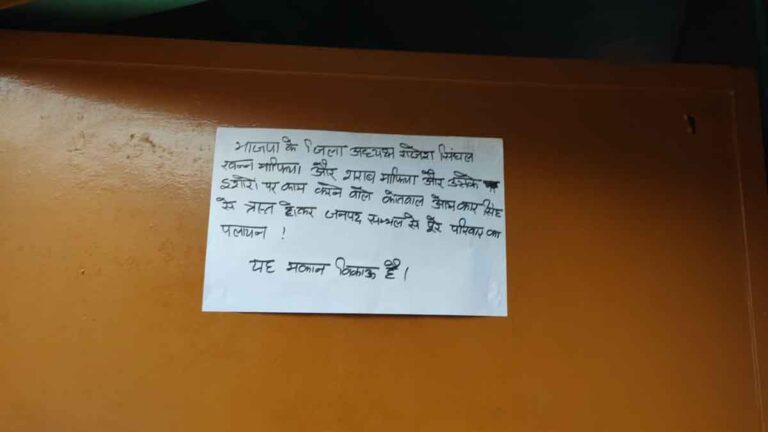 भाजपा के जिला अध्यक्ष राजेश सिंघल
खन्न माफिया और शराब माफिया और उसके
इशारो पर काम करने वाले कोतवाल ओम कार सिंह
से त्रास्त होकर जनपद सम्भल से पूरे परिवार का
पलायन !
यह मकान बिकाऊ है।